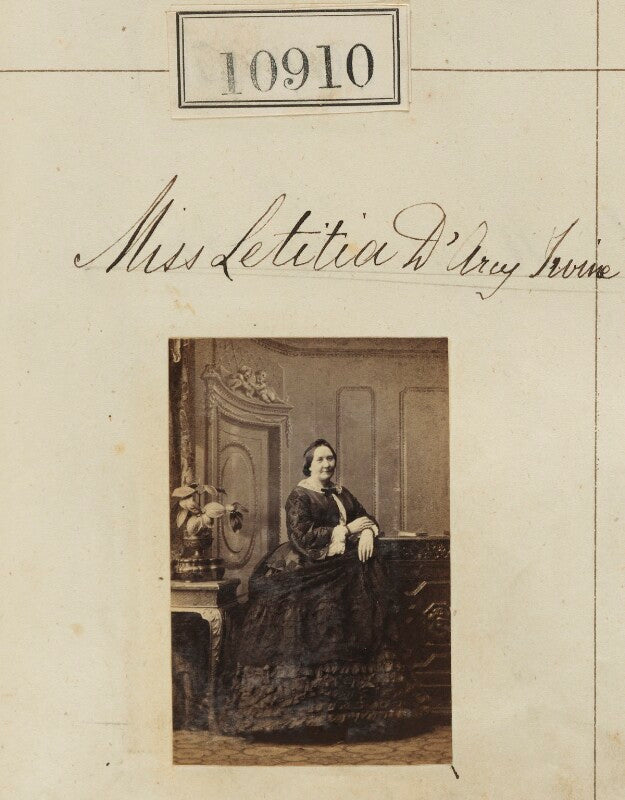 10910
Miss Letitia D'Arcy Irvine